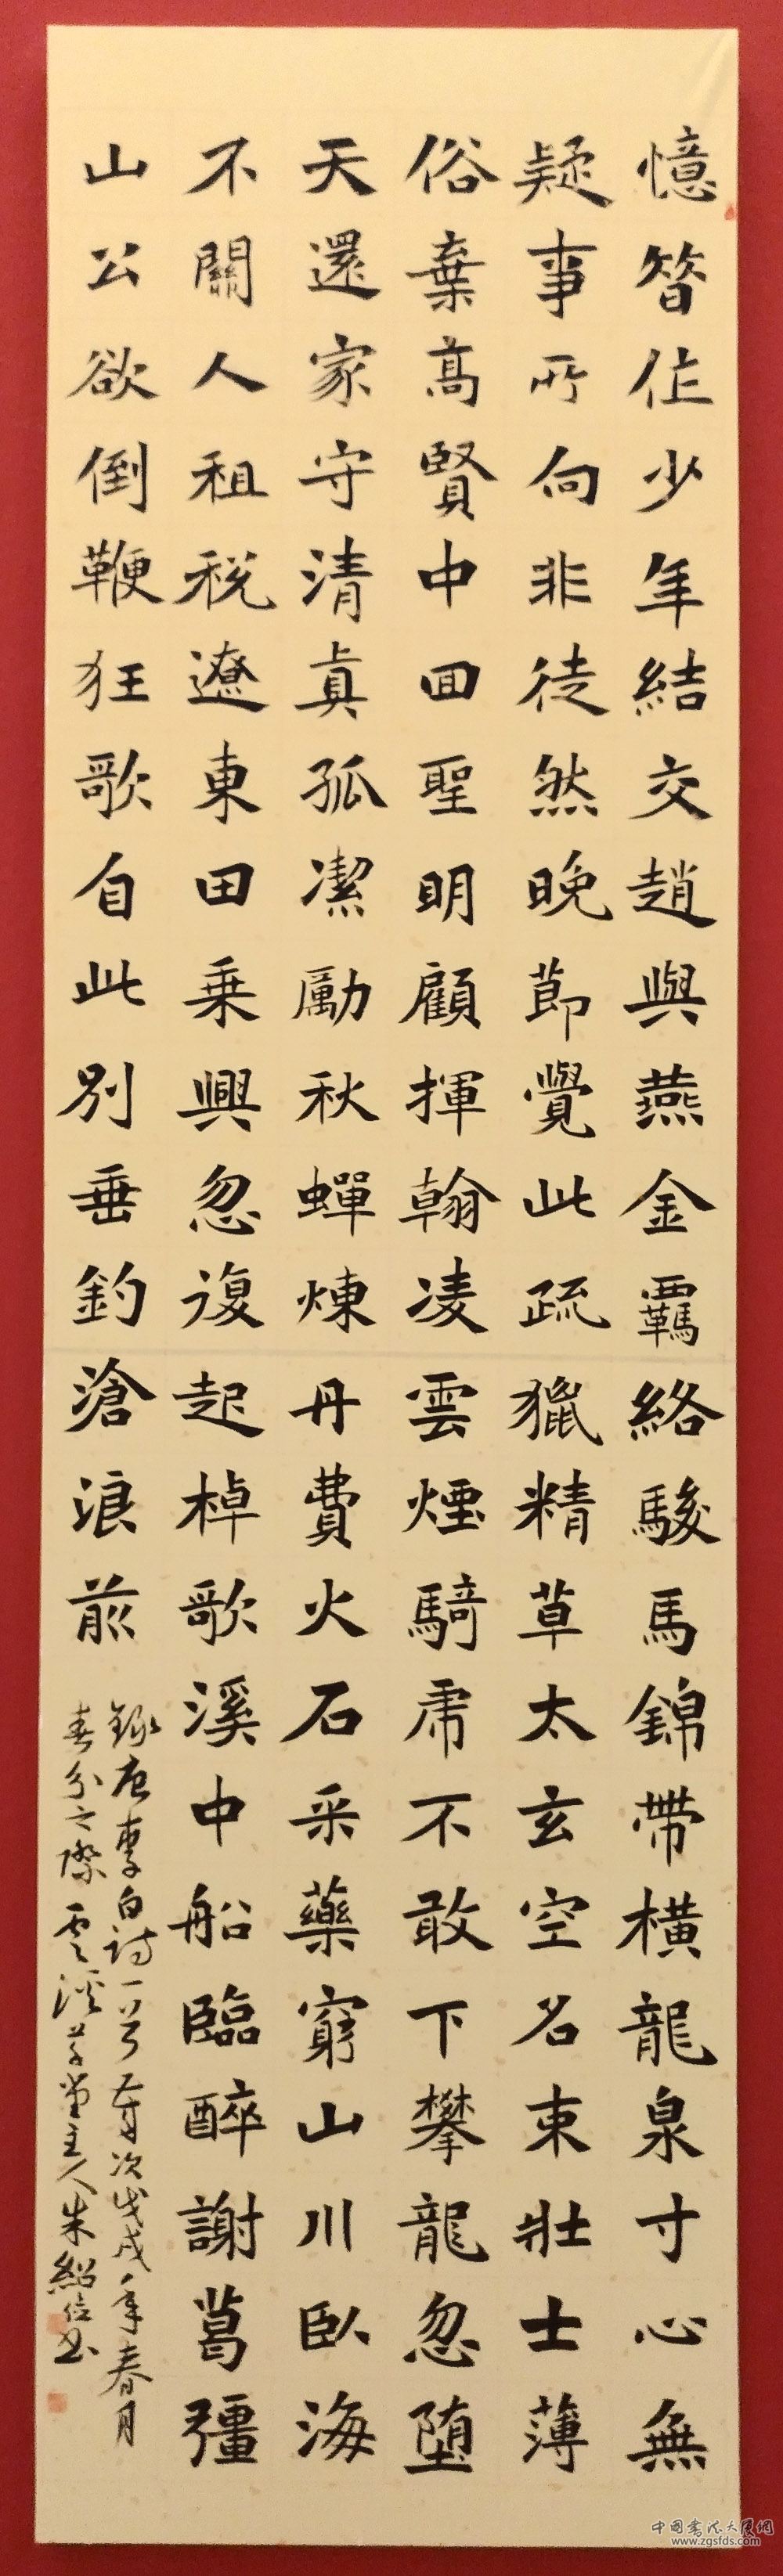 憶昝作少年結交趙與燕金羈絡駿馬錦帶橫龍泉寸心無
疑事所向非徒然晚節覺此疏獵精草太玄空名束壯士薄
俗棄高賢中回聖明顧揮翰凌雲煙騎虎不敢下攀龍忽墮
天還家守清真孤潔勵秋蟬煉丹費火石采藥窮山川臥海
不關人租稅遼東田乘興忽復起棹歌溪中船臨醉謝葛彊
山公欲倒鞭狂歌自此別垂釣滄浪前
錄唐李白詩一首 歲次戊戌年春月
春分之際雲溪草堂主人朱紹信書
中国书法大展网
www.zgsfds.com